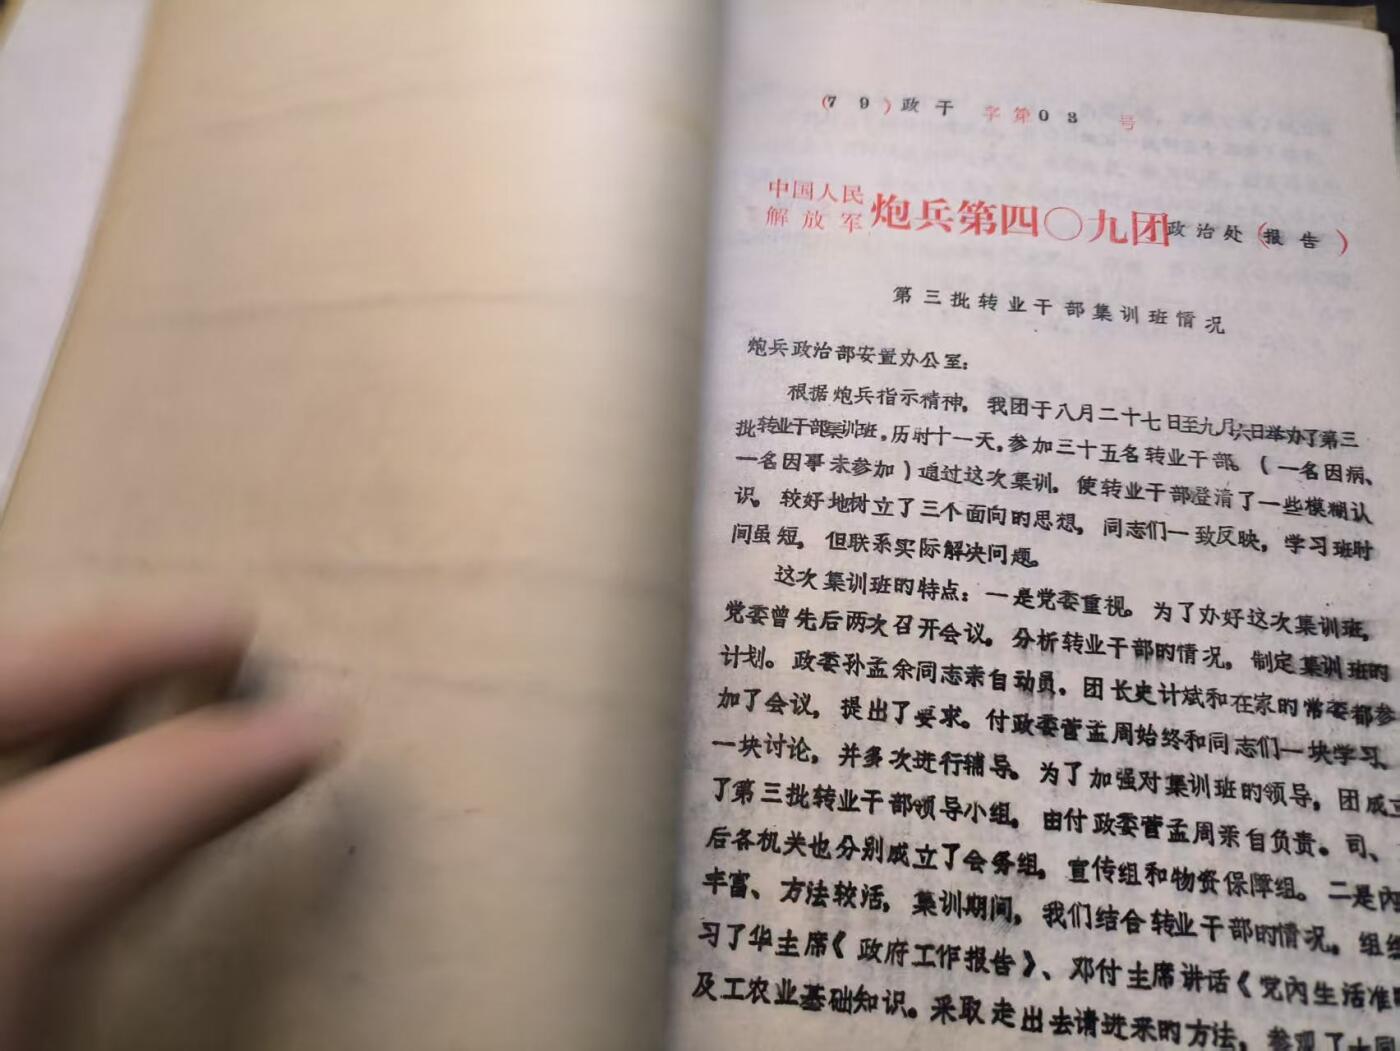 (79)政干字第03号
中国人民解放军炮兵第四〇九团政治处(报告)
第三批转业干部集训班情况
炮兵政治部安置办公室:
根据炮兵指示精神,我团于八月二十七日至九月六日举办了第三
批转业干部集训班,历时十一天,参加三十五名转业干部。(一名因病、
一名因事未参加)通过这次集训,使转业干部澄清了一些模糊认
识。较好地树立了三个面向的思想,同志们一致反映,学习班时
间虽短,但联系实际解决问题。
这次集训班的特点:一是党委重视。为了办好这次集训班,
党委曾先后两次召开会议。分析转业干部的情况,制定集训班的
计划。政委孙孟余同志亲自动员,团长史计斌和在家的常委都参
加了会议,提出了要求。付政委菅孟周始终和同志们一块学习、
一块讨论,并多次进行辅导。为了加强对集训班的领导,团成立
了第三批转业干部领导小组,由付政委菅孟周亲自负责。司、
后各机关也分别成立了会务组,宣传组和物资保障组。二是内
丰富、方法较活,集训期间,我们结合转业干部的情况。组织
习了华主席《政府工作报告》、邓付主席讲话《党内生活准则
及工农业基础知识。采取走出去请进来的方法,参观了